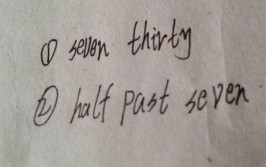 ① seven thirty
② half past seven